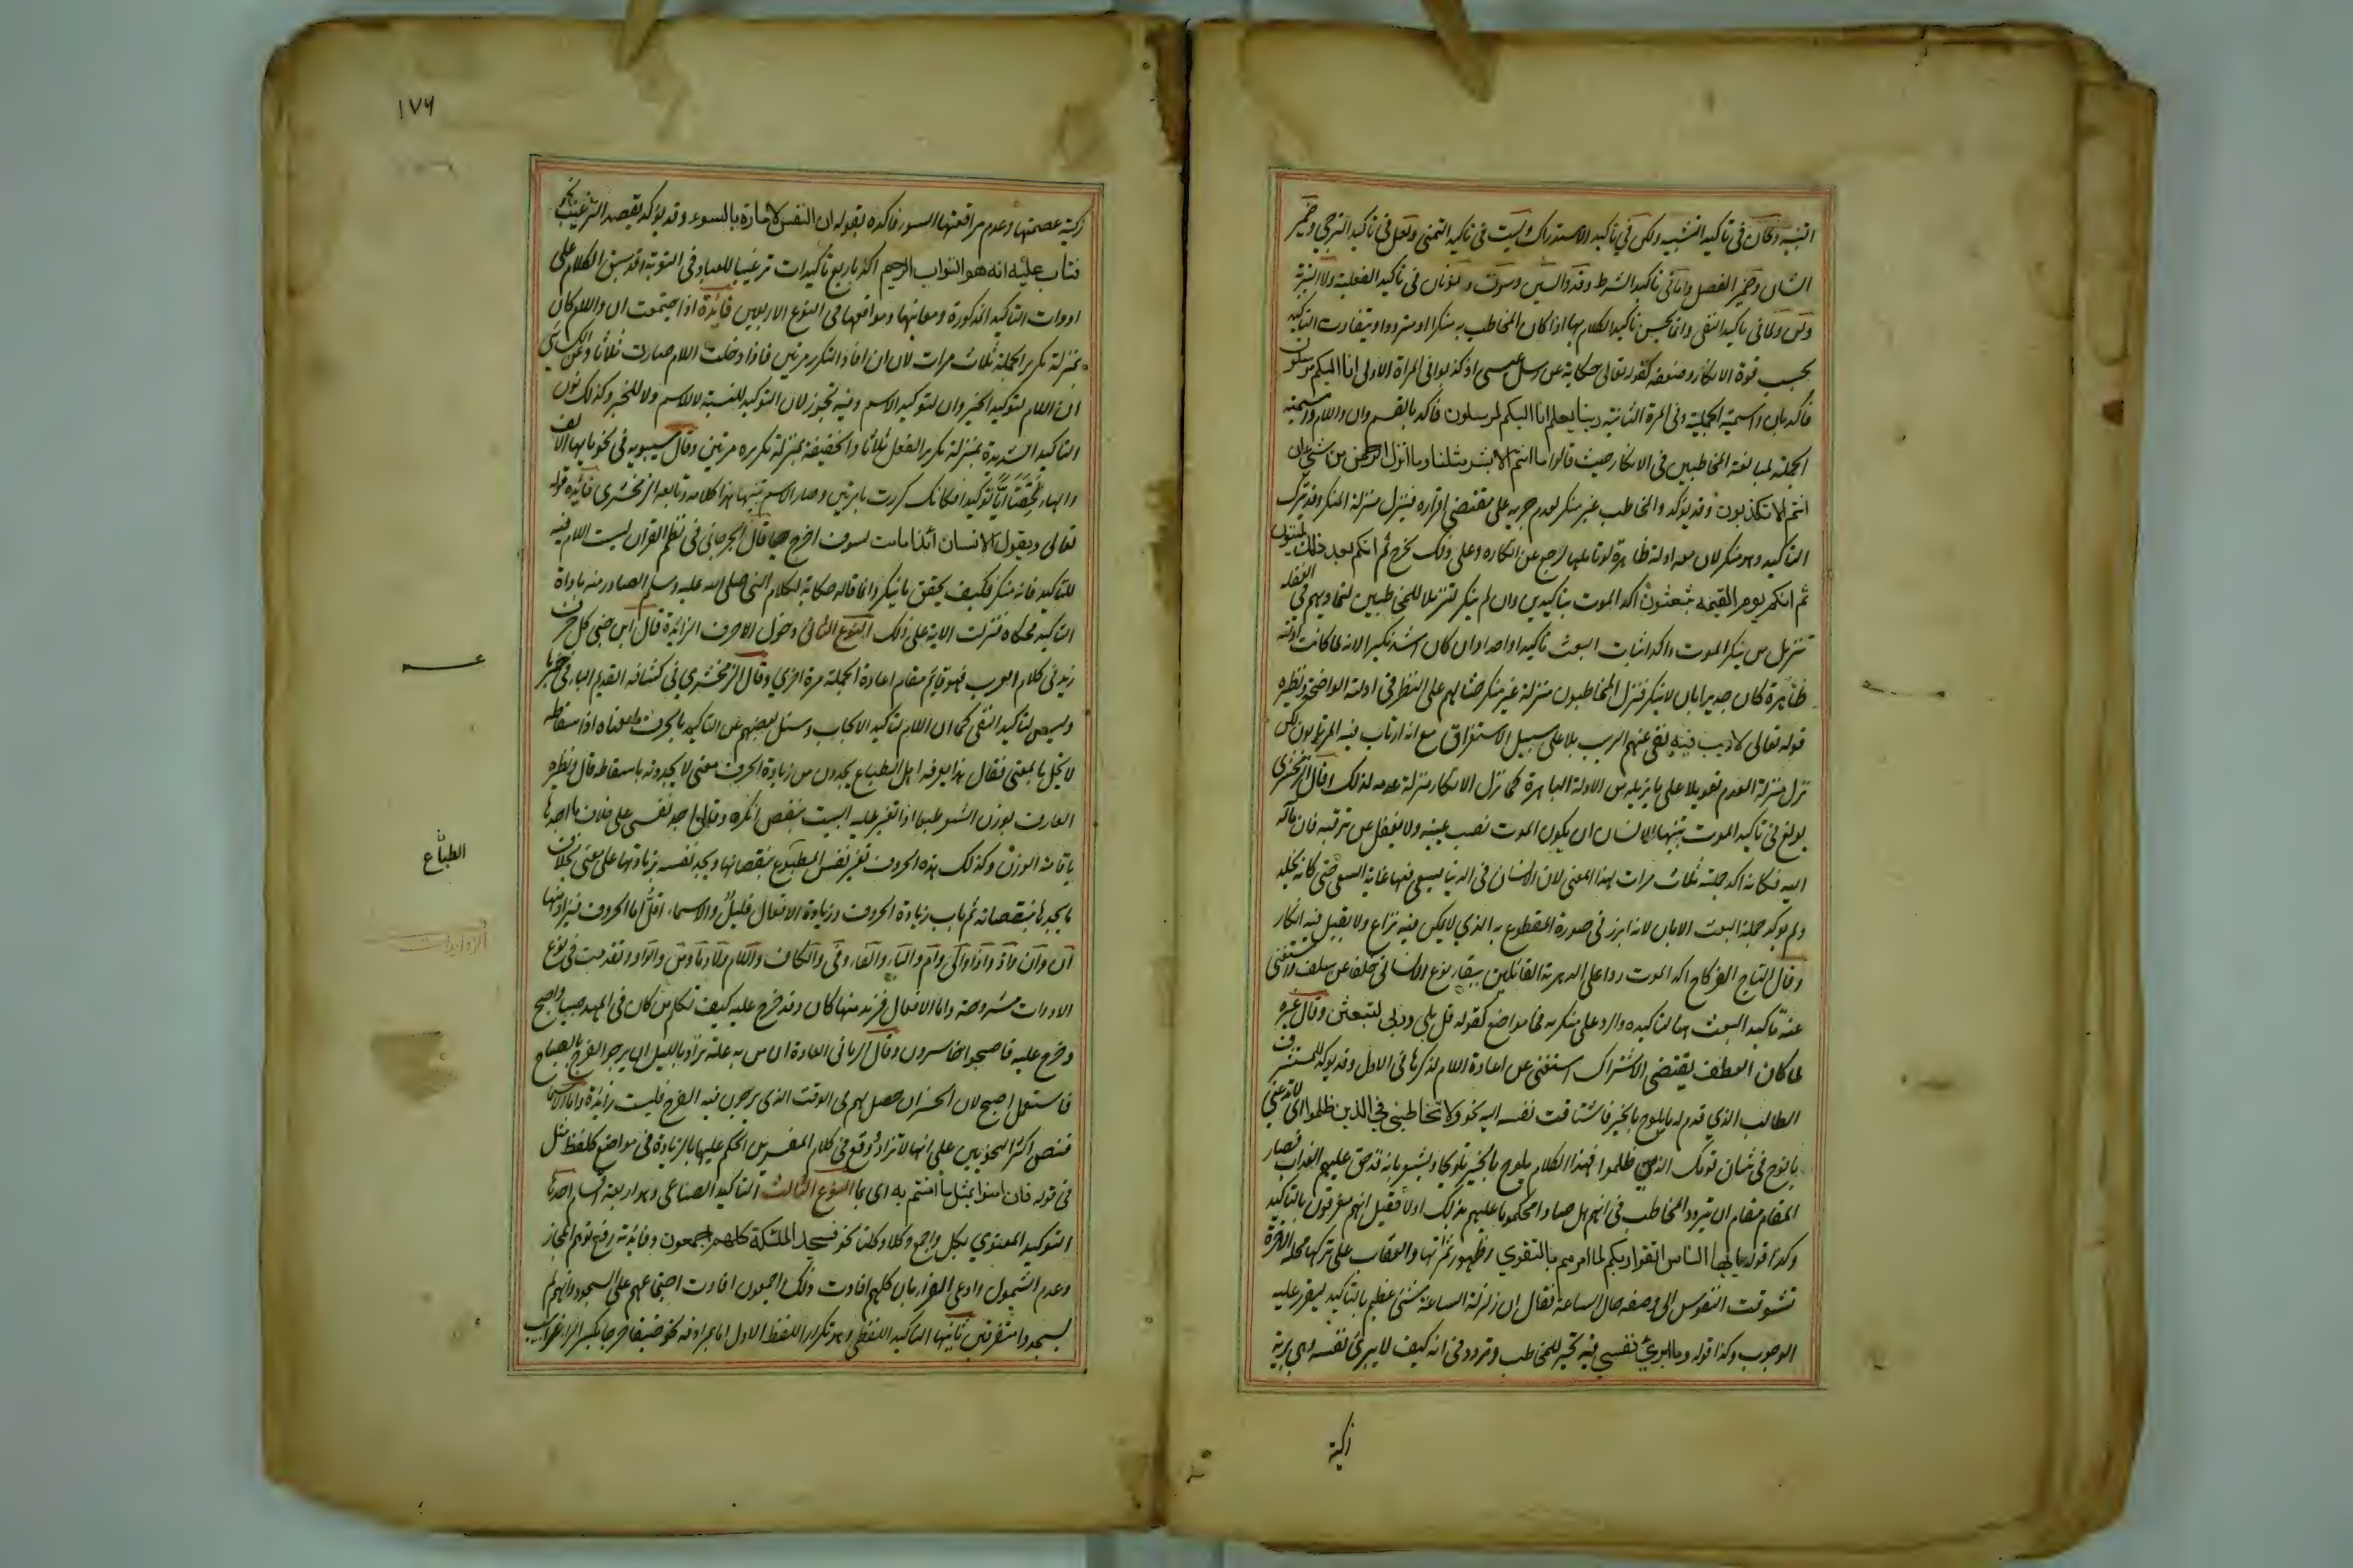 التنبيه وكان فى تاكيد التشبيه ولكن في تاكيد الاستدراك وليت فى تاكيد التمنى ولعل فى تاكيد الترجي وضمير
الشان وضمير الفصل واما فى تاكيد الشرط وقد والسين وسوف والنونان فى تاكيد الفعلية ولا التبرئة
ولن ولما فى تاكيد النفى وانما يحسن تاكيد الكلام بها اذا كان المخاطب به منكرا او مترددا ويتفاوت التاكيد
بحسب قوة الانكار وضعفه كقوله تعالى حكاية عن رسل عيسى اذ كذبوا فى المرة الاولى انا اليكم مرسلون
فاكد بان واسمية الجملة وفى المرة الثانية ربنا يعلم انا اليكم لمرسلون فاكد بالقسم وان واللام واسمية
الجملة لمبالغة المخاطبين فى الانكار حيث قالوا ما انتم الا بشر مثلنا وما انزل الرحمن من شئ ان
انتم الا تكذبون وقد يؤكد والمخاطب غير منكر لعدم جريه على مقتضى اقراره فينزل منزلة المنكر وقد يترك
التاكيد وهو منكر لان معه ادلة ظاهرة لو تاملها لرجع عن انكاره وعلى ذلك يخرج ثم انكم بعد ذلك لميتون
ثم انكم يوم القيمه تبعثون اكد الموت بتاكيدين وان لم ينكر لتنزيل المخاطبين لتماديهم فى الغفله
تنزيل من ينكر الموت واكد اثبات البعث تاكيدا واحدا وان كان اشد نكيرا لانه لما كانت ادلته
ظاهرة كان جديرا بان لا ينكر فنزل المخاطبون منزلة غير منكر حثا لهم على النظر فى ادلته الواضحة ونظيره
قوله تعالى لا ريب فيه نفى عنهم الريب بلا على سبيل الاستغراق مع انه ارتاب فيه المرتابون لكن
نزل منزلة العدم تعويلا على ما يزيله من الادلة الباهرة كما نزل الانكار منزلة عدمه لذلك وقال الزمخشرى
بولغ فى تاكيد الموت تنبيها للانسان ان يكون الموت نصب عينيه ولا يغفل عن ترقبه فان مآله
اليه فكانه اكد جملته ثلاث مرات لهذا المعنى لان الانسان فى الدنيا يسعى فيها غاية السعى حتى كانه يخلد
ولم يوكد جملة البعث الا بان لانه ابرز فى صورة المقطوع به الذي لا يمكن فيه نزاع ولا يقبل فيه انكار
وقال التاج الفركاح اكد الموت ردا على الدهرية القائلين ببقاء نوع الانسانى خلفا عن سلف واستغنى
عنه تاكيد البعث هنا لتاكيده والرد على منكريه فى مواضع كقوله قل بلى وربى لتبعثن وقال غيره
لما كان العطف يقتضى الاشتراك استغنى عن اعادة اللام لذكرها فى الاول وقد يوكد للمستشرف
الطالب الذي قدم له ما يلوح بالخبر فاشتاقت نفسه اليه نحو ولا تخاطبنى فى الذين ظلموا اى لا تدعنى
يا نوح فى شان قومك الذين ظلموا فهذا الكلام يلوح بالخبر تلويحا ويشعر بانه قد حق عليهم العذاب فصار
المقام مقام ان يتردد المخاطب فى انهم هل صاروا محكوما عليهم بذلك اولا فقيل انهم مغرقون بالتاكيد
وكذا قوله يا ايها الناس اتقوا ربكم لما امرهم بالتقوي وظهور ثمرتها والعقاب على تركها محله الاخرة
تشوقت النفوس الى وصف حال الساعة فقال ان زلزلة الساعة شئ عظيم بالتاكيد ليقرر عليه
الوجوب وكذا قوله وما ابرئ نفسي فيه تحير للمخاطب وتردد فى انه كيف لا يبرئ نفسه وهى برية
زكية
١٧٦
زكية عصمتها وعدم مواقعتها السوء فاكده بقوله ان النفس لامارة بالسوء وقد يؤكد بقصد الترغيب نحو
فتاب عليه انه هو التواب الرحيم اكد باربع تاكيدات ترغيبا للعباد فى التوبة وقد سبق الكلام على
ادوات التاكيد المذكورة ومعانيها ومواقعها فى النوع الاربعين فائدة اذا اجتمعت ان واللام كان
بمنزلة تكرير الجملة ثلاث مرات لان ان افادت التكرير مرتين فاذا دخلت اللام صارت ثلاثا وعن الكسائى
ان اللام لتوكيد الخبر وان لتوكيد الاسم وفيه تجوز لان التوكيد للنسبة لا للاسم ولا للخبر وكذلك نون
التاكيد الشديدة بمنزلة تكرير الفعل ثلاثا والخفيفة بمنزلة تكريره مرتين وقال سيبويه فى نحو يا ايها الالف
والهاء لحقتا ايا توكيدا فكانك كررت يا مرتين وصار الاسم تنبيها هذا كلامه وتابعه الزمخشرى فائدة قوله
تعالى ويقول الانسان ائذا ما مت لسوف اخرج حيا قال الجرجانى فى نظم القرآن ليست اللام فيه
للتاكيد فانه منكر فكيف يحقق ما ينكر وانما قاله حكاية لكلام النبى صلى الله عليه وسلم الصادر منه باداة
التاكيد فحكاه فنزلت الاية على ذلك النوع الثانى دخول الاحرف الزائدة قال ابن جنى كل حرف
زيد فى كلام العرب فهو قائم مقام اعادة الجملة مرة اخري وقال الزمخشري فى كشافه القديم الباء فى خبر ما
وليس لتاكيد النفى كما ان اللام لتاكيد الايجاب وسئل بعضهم عن التاكيد بالحرف وما معناه اذ اسقاطه
لا يخل بالمعنى فقال هذا يعرفه اهل الطباع يجدون من زيادة الحرف معنى لا يجدونه باسقاطه قال ونظيره
العارف بوزن الشعر طبعا اذا تغير عليه البيت بنقص انكره وقال اجد نفسى على خلاف ما اجدها
باقامة الوزن وكذلك هذه الحروف تغير نفس المطبوع بنقصانها ويجد نفسه بزيادتها على معنى بخلاف
ما يجدها بنقصانه ثم باب زيادة الحروف وزيادة الافعال قليل والاسماء اقل اما الحروف فيزاد منها
ان وان واذ واذا والى وام والباء والفاء وفى والكاف واللام ولا وما ومن والواو وتقدمت فى نوع
الادوات مشروحة واما الافعال فزيد منها كان وقد خرج عليه كيف نكلم من كان فى المهد صبيا واصبح
وخرج عليه فاصبحوا خاسرين وقال الرمانى العادة ان من به علة تزاد بالليل ان يرجو الفرج بالصباح
فاستعمل اصبح لان الخسران حصل لهم فى الوقت الذى يرجون فيه الفرج فليست زائدة واما الاسماء
فنص اكثر النحويين على انها لا تزاد ووقع فى كلام المفسرين الحكم عليها بالزيادة فى مواضع كلفظ مثل
فى قوله فان امنوا بمثل ما امنتم به اى بما النوع الثالث التاكيد الصناعى وهو اربعة اقسام احدها
التوكيد المعنوي بكل واجمع وكلا وكلتا نحو فسجد الملئكة كلهم اجمعون وفائدته رفع توهم المجاز
وعدم الشمول وادعى الفراء بان كلهم افادت ذلك واجمعون افادت اجتماعهم على السجود وانهم لم
يسجدوا متفرقين ثانيها التاكيد اللفظى وهو تكرار اللفظ الاول اما بمرادفه نحو ضيقا حرجا بكسر الراء وغرابيب
الطباع